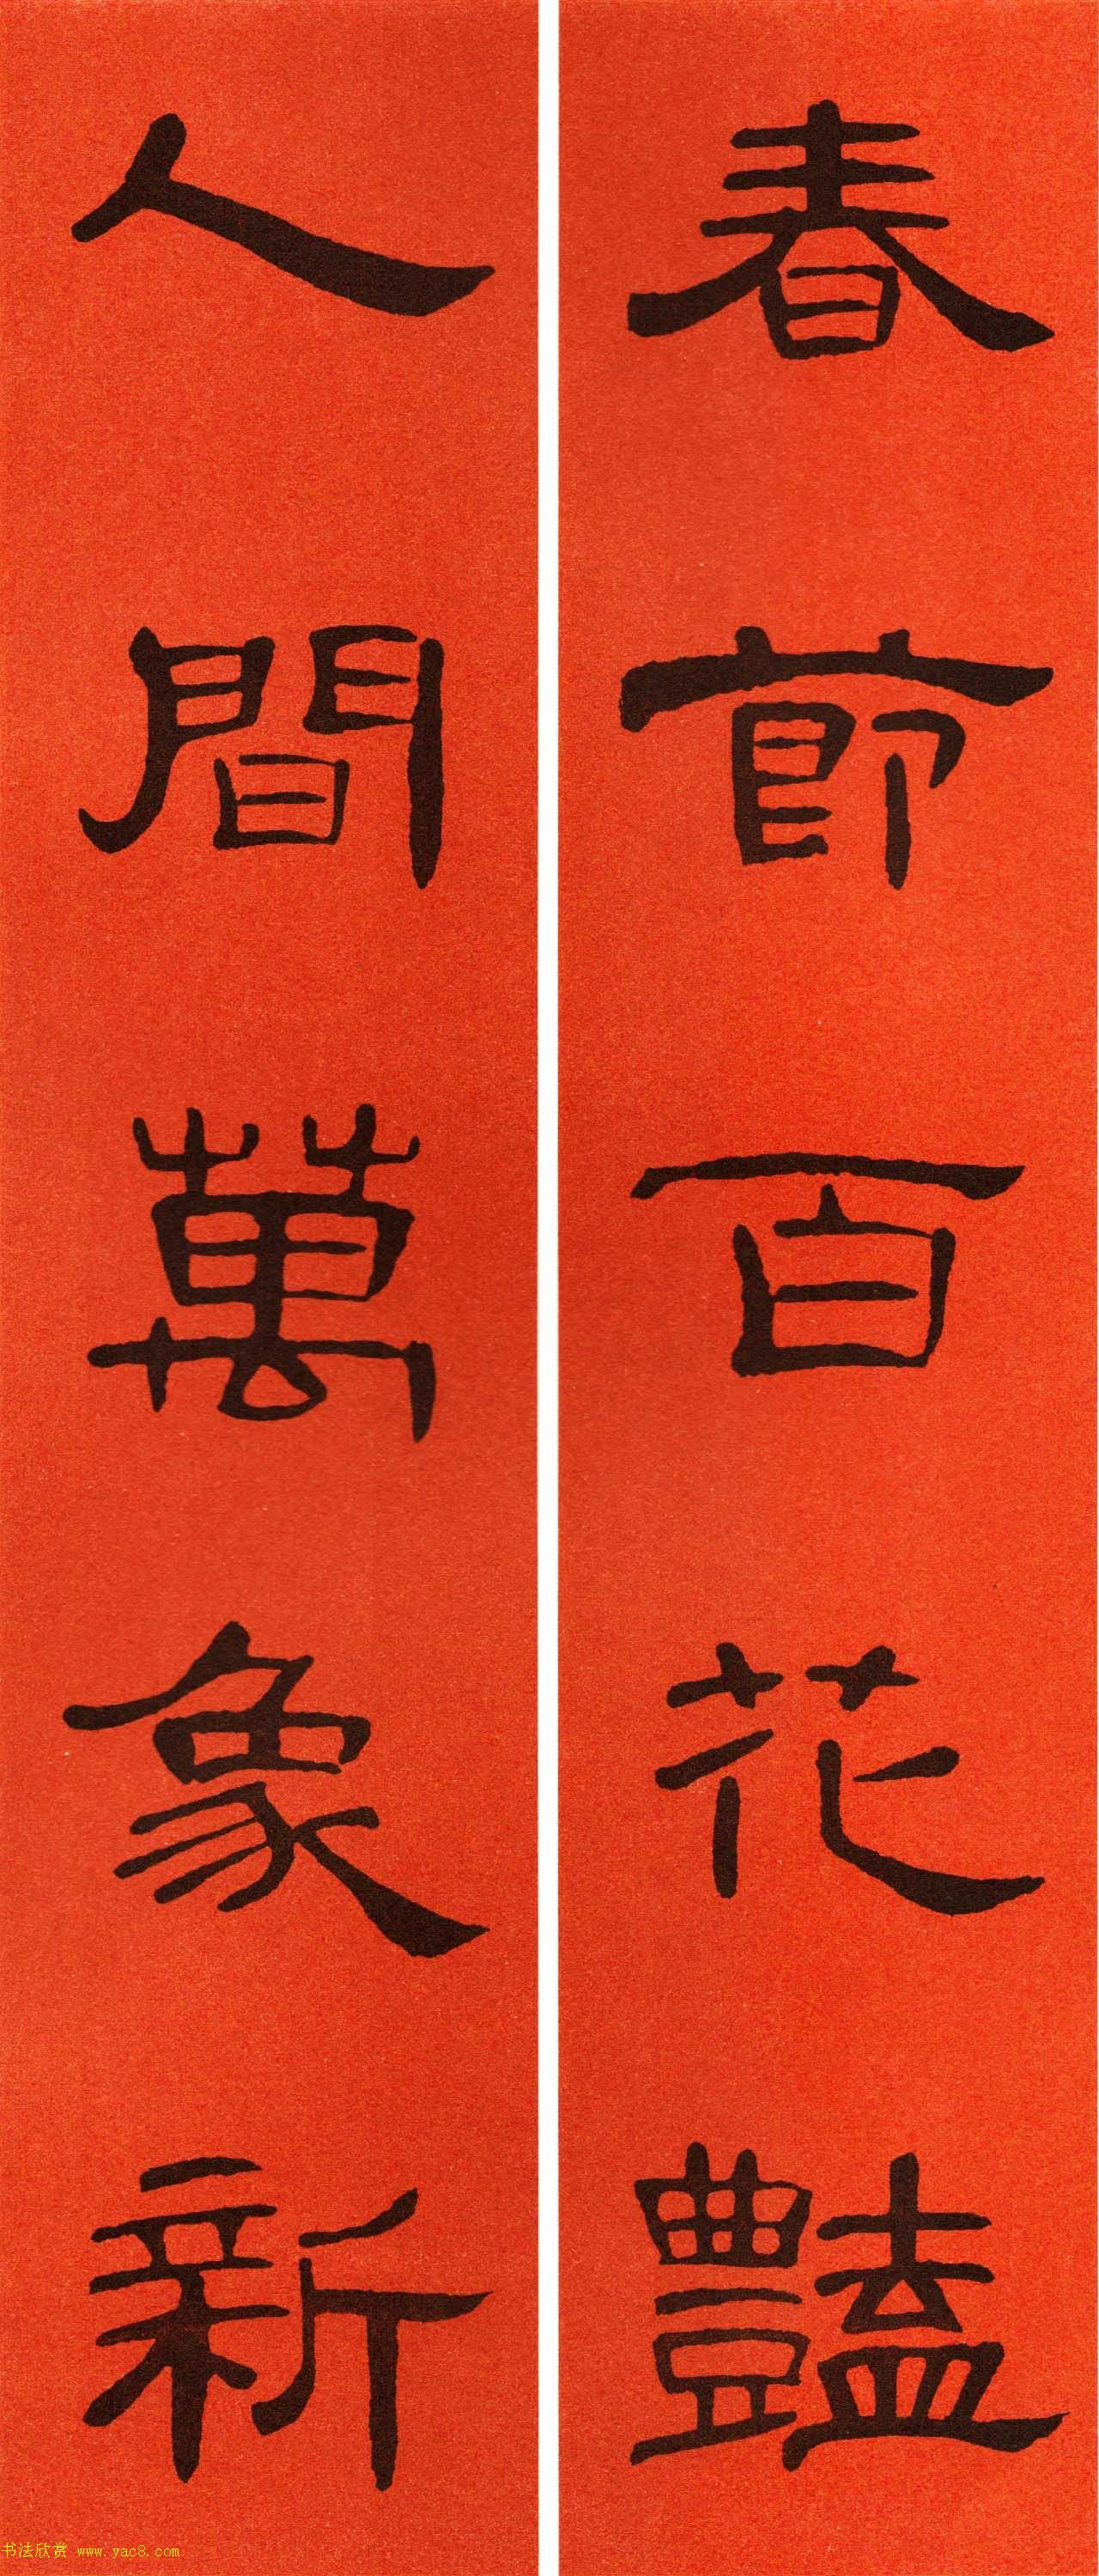 春節百花豔
人間萬象新
书法欣赏 www.yac8.com